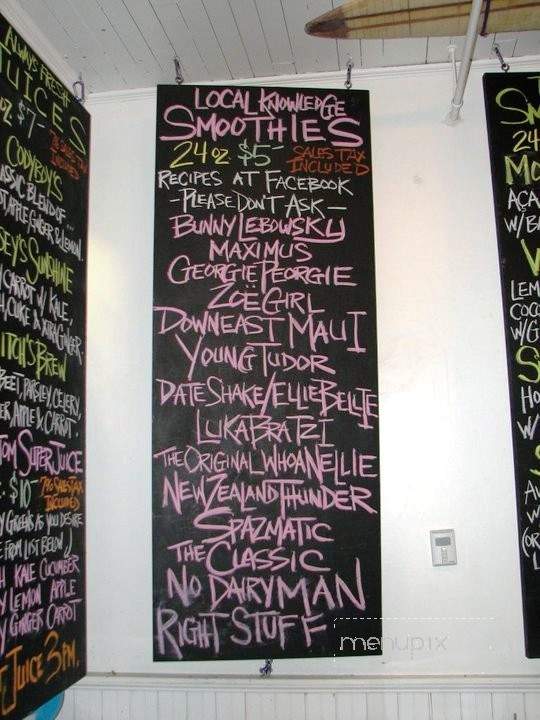 ALWAYS FRESH
JUICES
OZ $7-
7% SALES TAX
INCLUDED
CODYBOY'S
CLASSIC BLEND OF...
APPLE GINGER & LEMON.
SUNSHINE
CARROT W/ KALE,
CUKE & XTRA GINGER.
BREW
BEET, PARSLEY, CELERY,
APPLE & CARROT.
SUPER JUICE
$10- 7% SALES TAX
INCLUDED
GREENS AS YOU DESIRE
FROM LIST BELOW
KALE CUCUMBER
LEMON APPLE
GINGER CARROT
JUICE 3PM.
LOCAL KNOWLEDGE
SMOOTHIES
24 OZ $5- SALES TAX
INCLUDED
RECIPES AT FACEBOOK
-PLEASE DON'T ASK-
BUNNY LEBOWSKU
MAXIMUS
GEORGIE PEORGIE
ZOË GIRL
DOWNEAST MAUI
YOUNG TUDOR
DATE SHAKE/ELLIE BELLIE
LUKA BRATZI
THE ORIGINAL WHOA NELLIE
NEW ZEALAND THUNDER
SPAZMATIC
THE CLASSIC
NO DAIRY MAN
RIGHT STUFF
menupix
24
W/
LEM
COCO
W/G
HO
W/